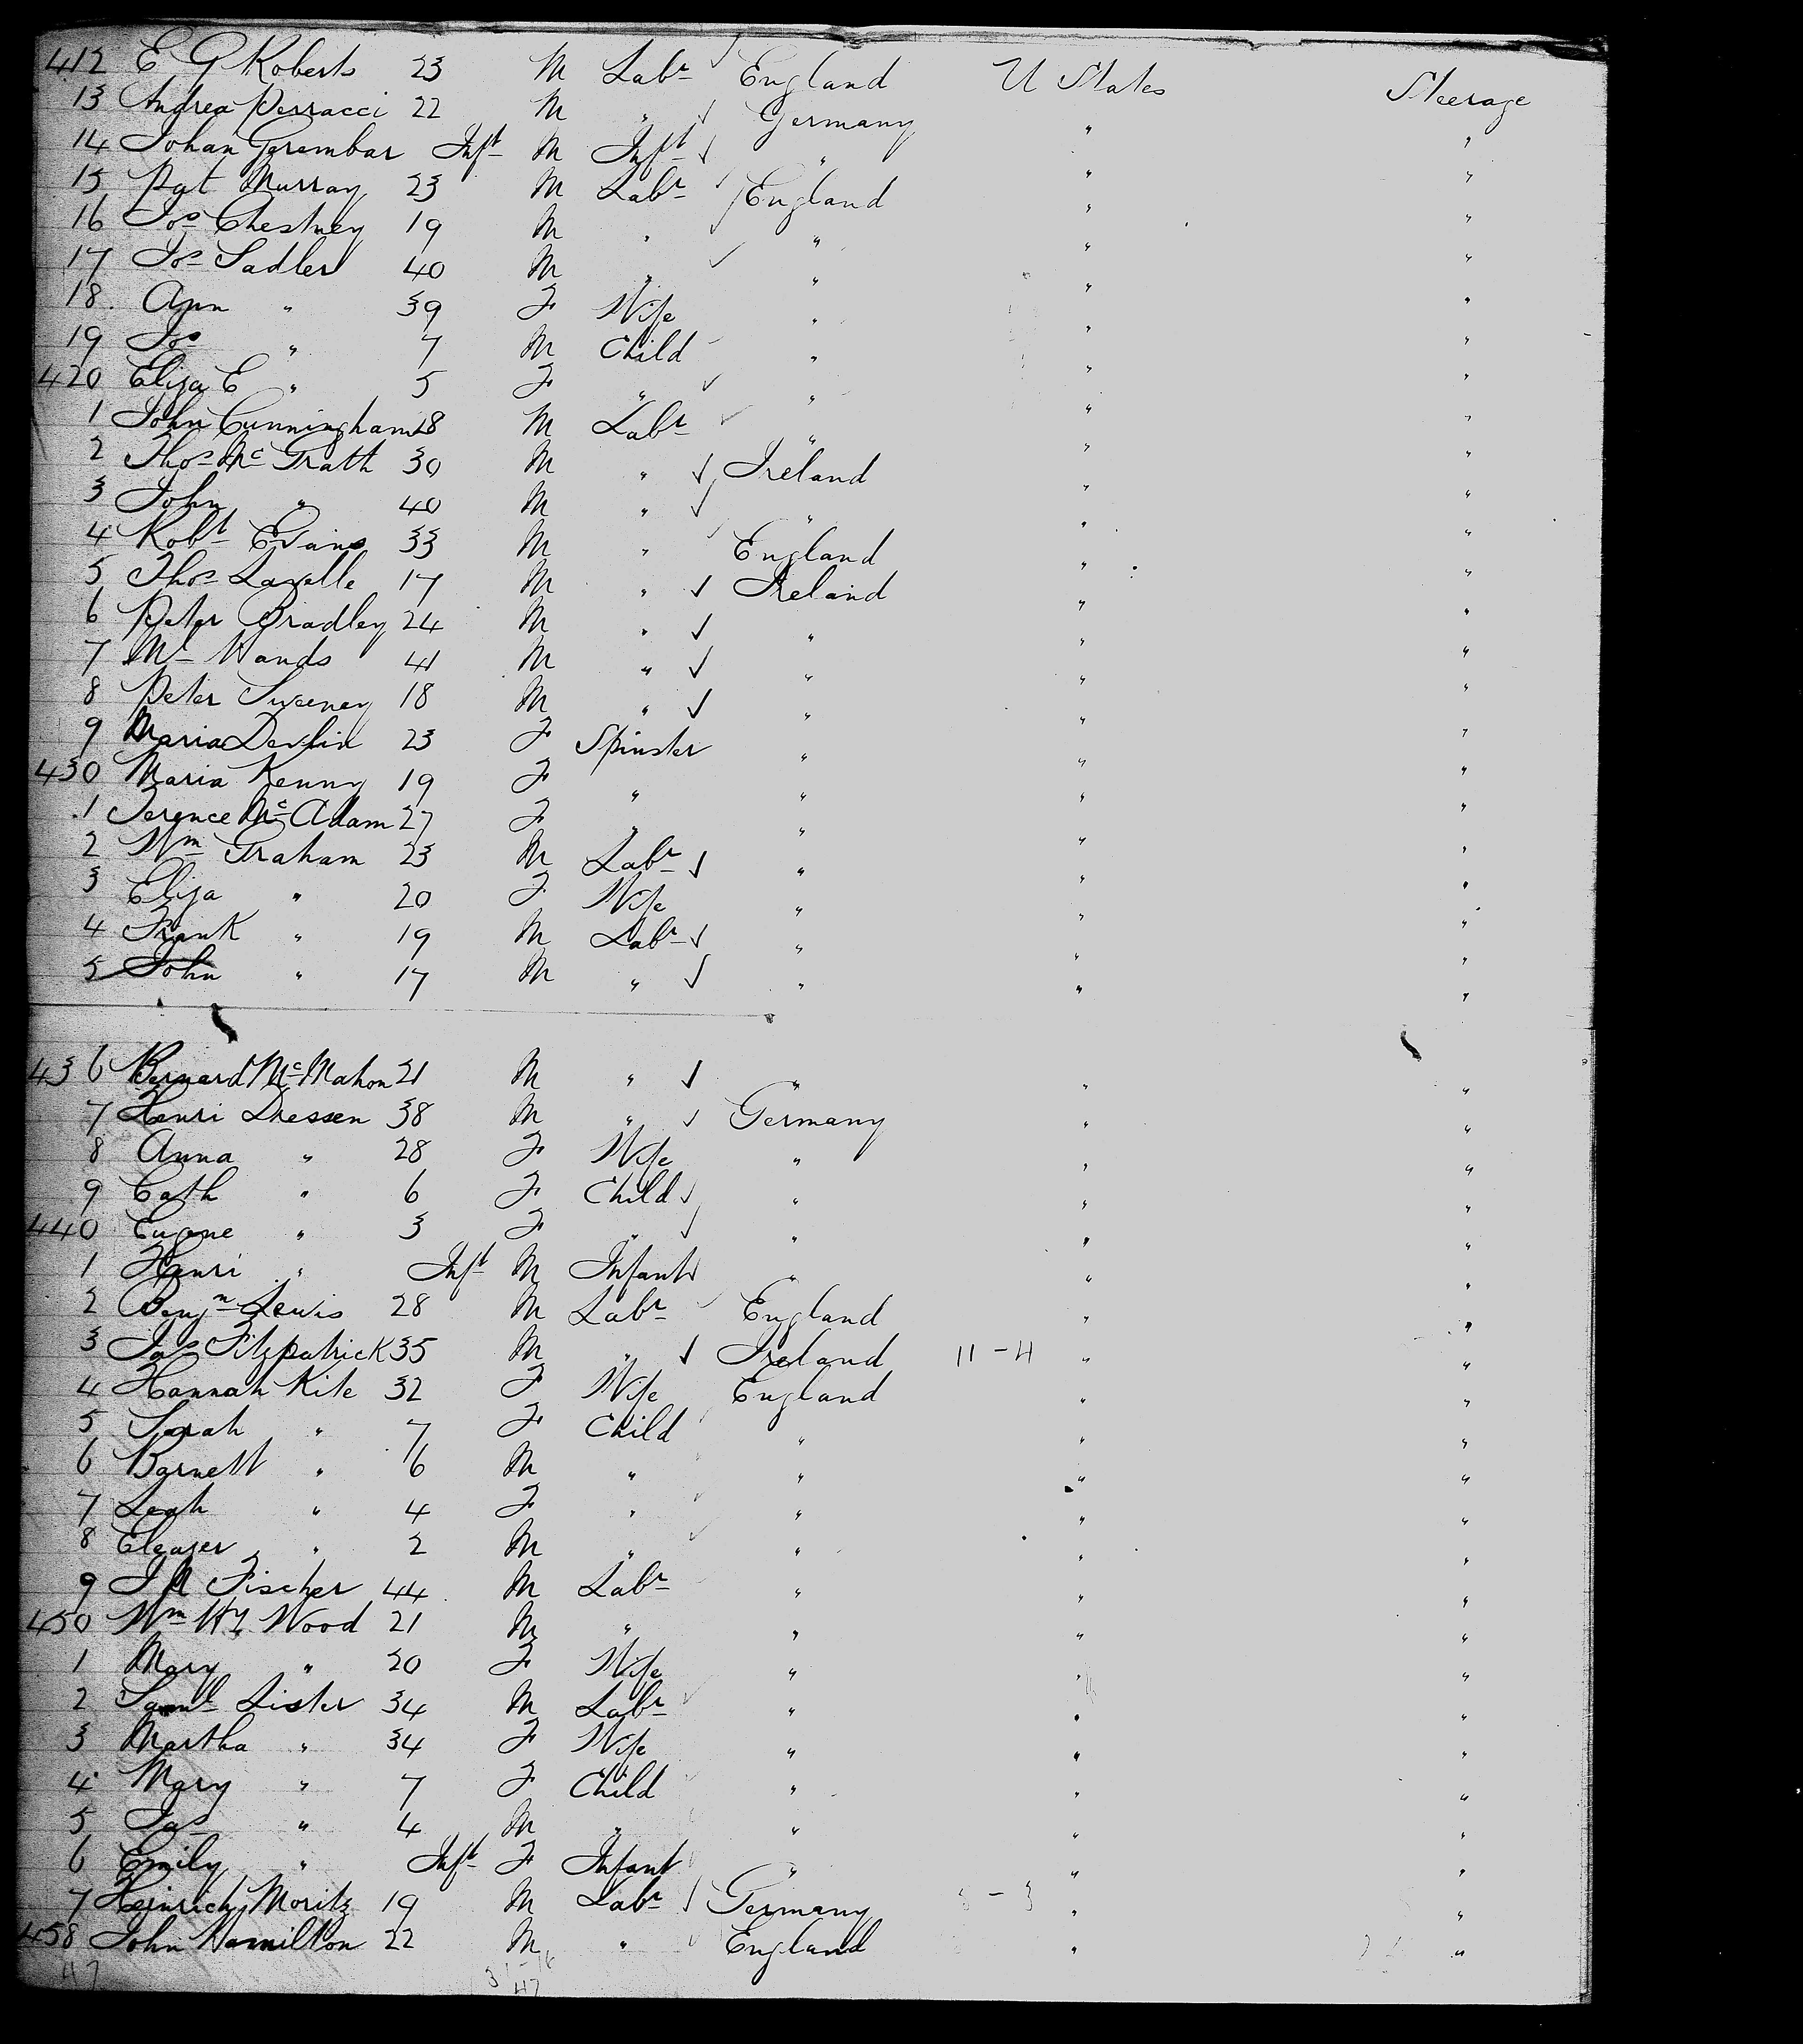 412 E G Roberts 23 M Labr England U States Steerage
13 Andrea Perracci 22 M " Germany " "
14 Johan Gerembar Inft M Inft " " "
15 Pat Murray 23 M Labr England " "
16 Jos Chestney 19 M " " " "
17 Jos Sadler 40 M " " " "
18 Ann " 39 F Wife " " "
19 Jos " 7 M Child " " "
420 Eliza E " 5 F " " " "
1 John Cunningham 28 M Labr " " "
2 Thos Mc Grath 30 M " Ireland " "
3 John " 40 M " " " "
4 Robt Evans 33 M " England " "
5 Thos Lavelle 17 M " Ireland " "
6 Peter Bradley 24 M " " " "
7 Mr Hands 41 M " " " "
8 Peter Sweeney 18 M " " " "
9 Maria Devlin 23 F Spinster " " "
430 Maria Kenny 19 F " " " "
1 Terence Mc Adam 27 F " " " "
2 Wm Graham 23 M Labr " " "
3 Eliza " 20 F Wife " " "
4 Frank " 19 M Labr " " "
5 John " 17 M " " " "
436 Bernard Mc Mahon 21 M " " " "
7 Henri Dressen 38 M " Germany " "
8 Anna " 28 F Wife " " "
9 Cath " 6 F Child " " "
440 Eugene " 3 F " " " "
1 Henri " Inft M Infant " " "
2 Benjn Lewis 28 M Labr England " "
3 Jas Fitzpatrick 35 M " Ireland 11-4 " "
4 Hannah Kite 32 F Wife England " "
5 Sarah " 7 F Child " " "
6 Barnett " 6 M " " " "
7 Leah " 4 F " " " "
8 Eleazer " 2 M " " " "
9 J M Fischer 44 M Labr " " "
450 Wm Hy Wood 21 M " " " "
1 Mary " 20 F Wife " " "
2 Saml Lister 34 M Labr " " "
3 Martha " 34 F Wife " " "
4 Mary " 7 F Child " " "
5 Jas " 4 M " " " "
6 Emily " Inft F Infant " " "
7 Heinrich Moritz 19 M Labr Germany " "
458 John Hamilton 22 M " England " "
47 31-16
47